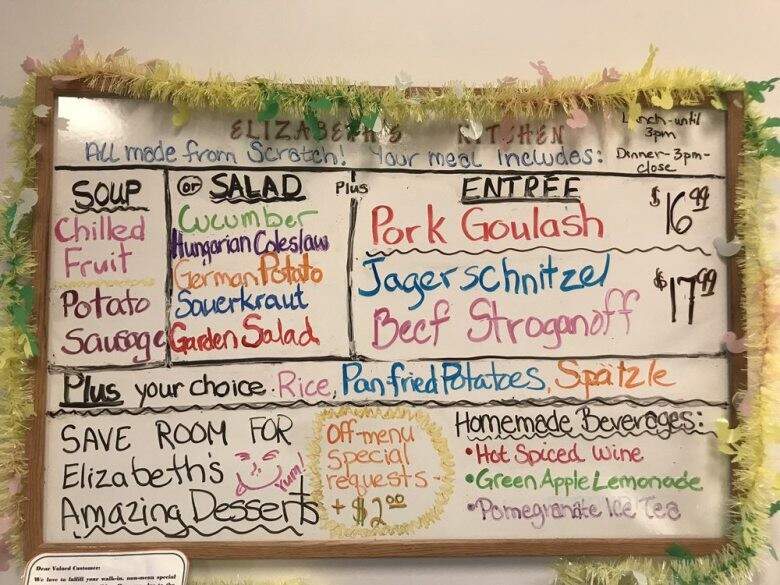 ELIZABETH'S KITCHEN
Lunch-until
3pm
All made from Scratch! Your meal includes:
Dinner-3pm-
close
SOUP
Chilled
Fruit
Potato
Sausage
or SALAD
Cucumber
Hungarian Coleslaw
German Potato
Sauerkraut
Garden Salad
Plus
ENTREE
Pork Goulash $16.99
Jagerschnitzel
Beef Stroganoff
$17.99
Plus your choice: Rice, Panfried Potatoes, Spätzle
SAVE ROOM FOR
Elizabeth's
Yum!
Amazing Desserts
Off-menu
special
requests-
+ $2.00
Homemade Beverages:
• Hot Spiced Wine
• Green Apple Lemonade
• Pomegranate Ice Tea
Dear Valued Customer:
We love to fulfill your walk-in, non-menu special